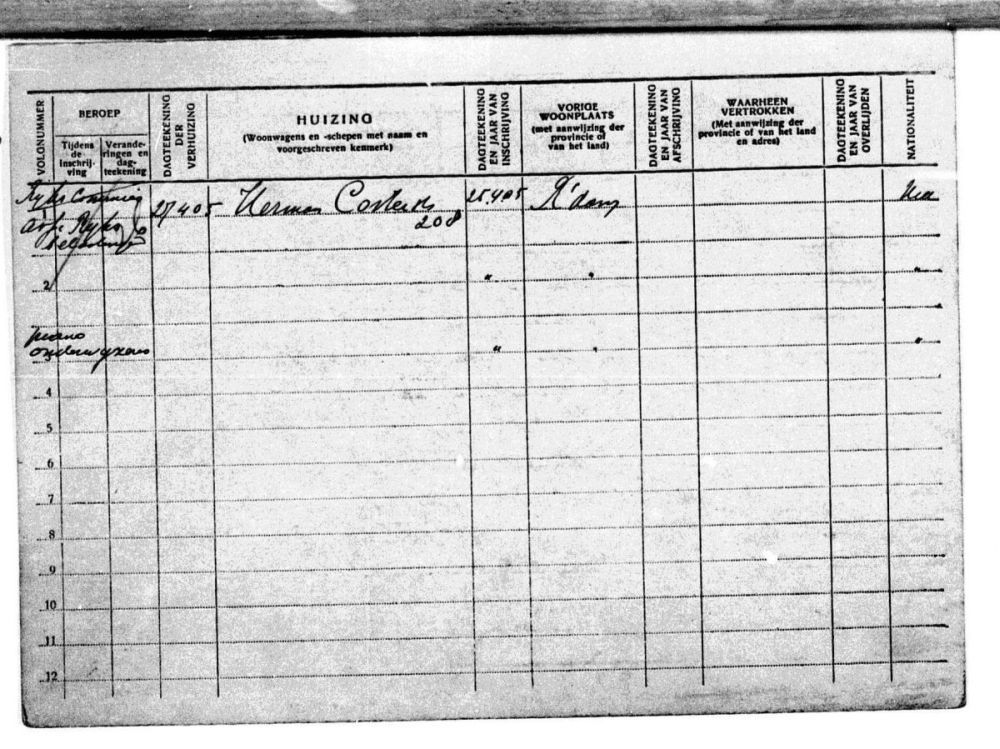 VOLGNUMMER
BEROEP
Tijdens de inschrij-ving
Verande-ringen en dag-teekening
DAGTEEKENING DER VERHUIZING
HUIZING
(Woonwagens en -schepen met naam en voorgeschreven kenmerk)
DAGTEEKENING EN JAAR VAN INSCHRIJVING
VORIGE WOONPLAATS
(met aanwijzing der provincie of van het land)
DAGTEEKENING EN JAAR VAN AFSCHRIJVING
WAARHEEN VERTROKKEN
(Met aanwijzing der provincie of van het land en adres)
DAGTEEKENING EN JAAR VAN OVERLIJDEN
NATIONALITEIT
27 4 05
Herman
25.4.05
R'dam
Ned
208
1
2 " " "
piano
onderwijzeres
3 " " "
4
5
6
7
8
9
10
11
12